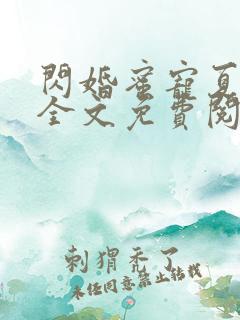 閃婚蜜寵夏
全文免費閱
刺猬禿了
未经同意禁止转载